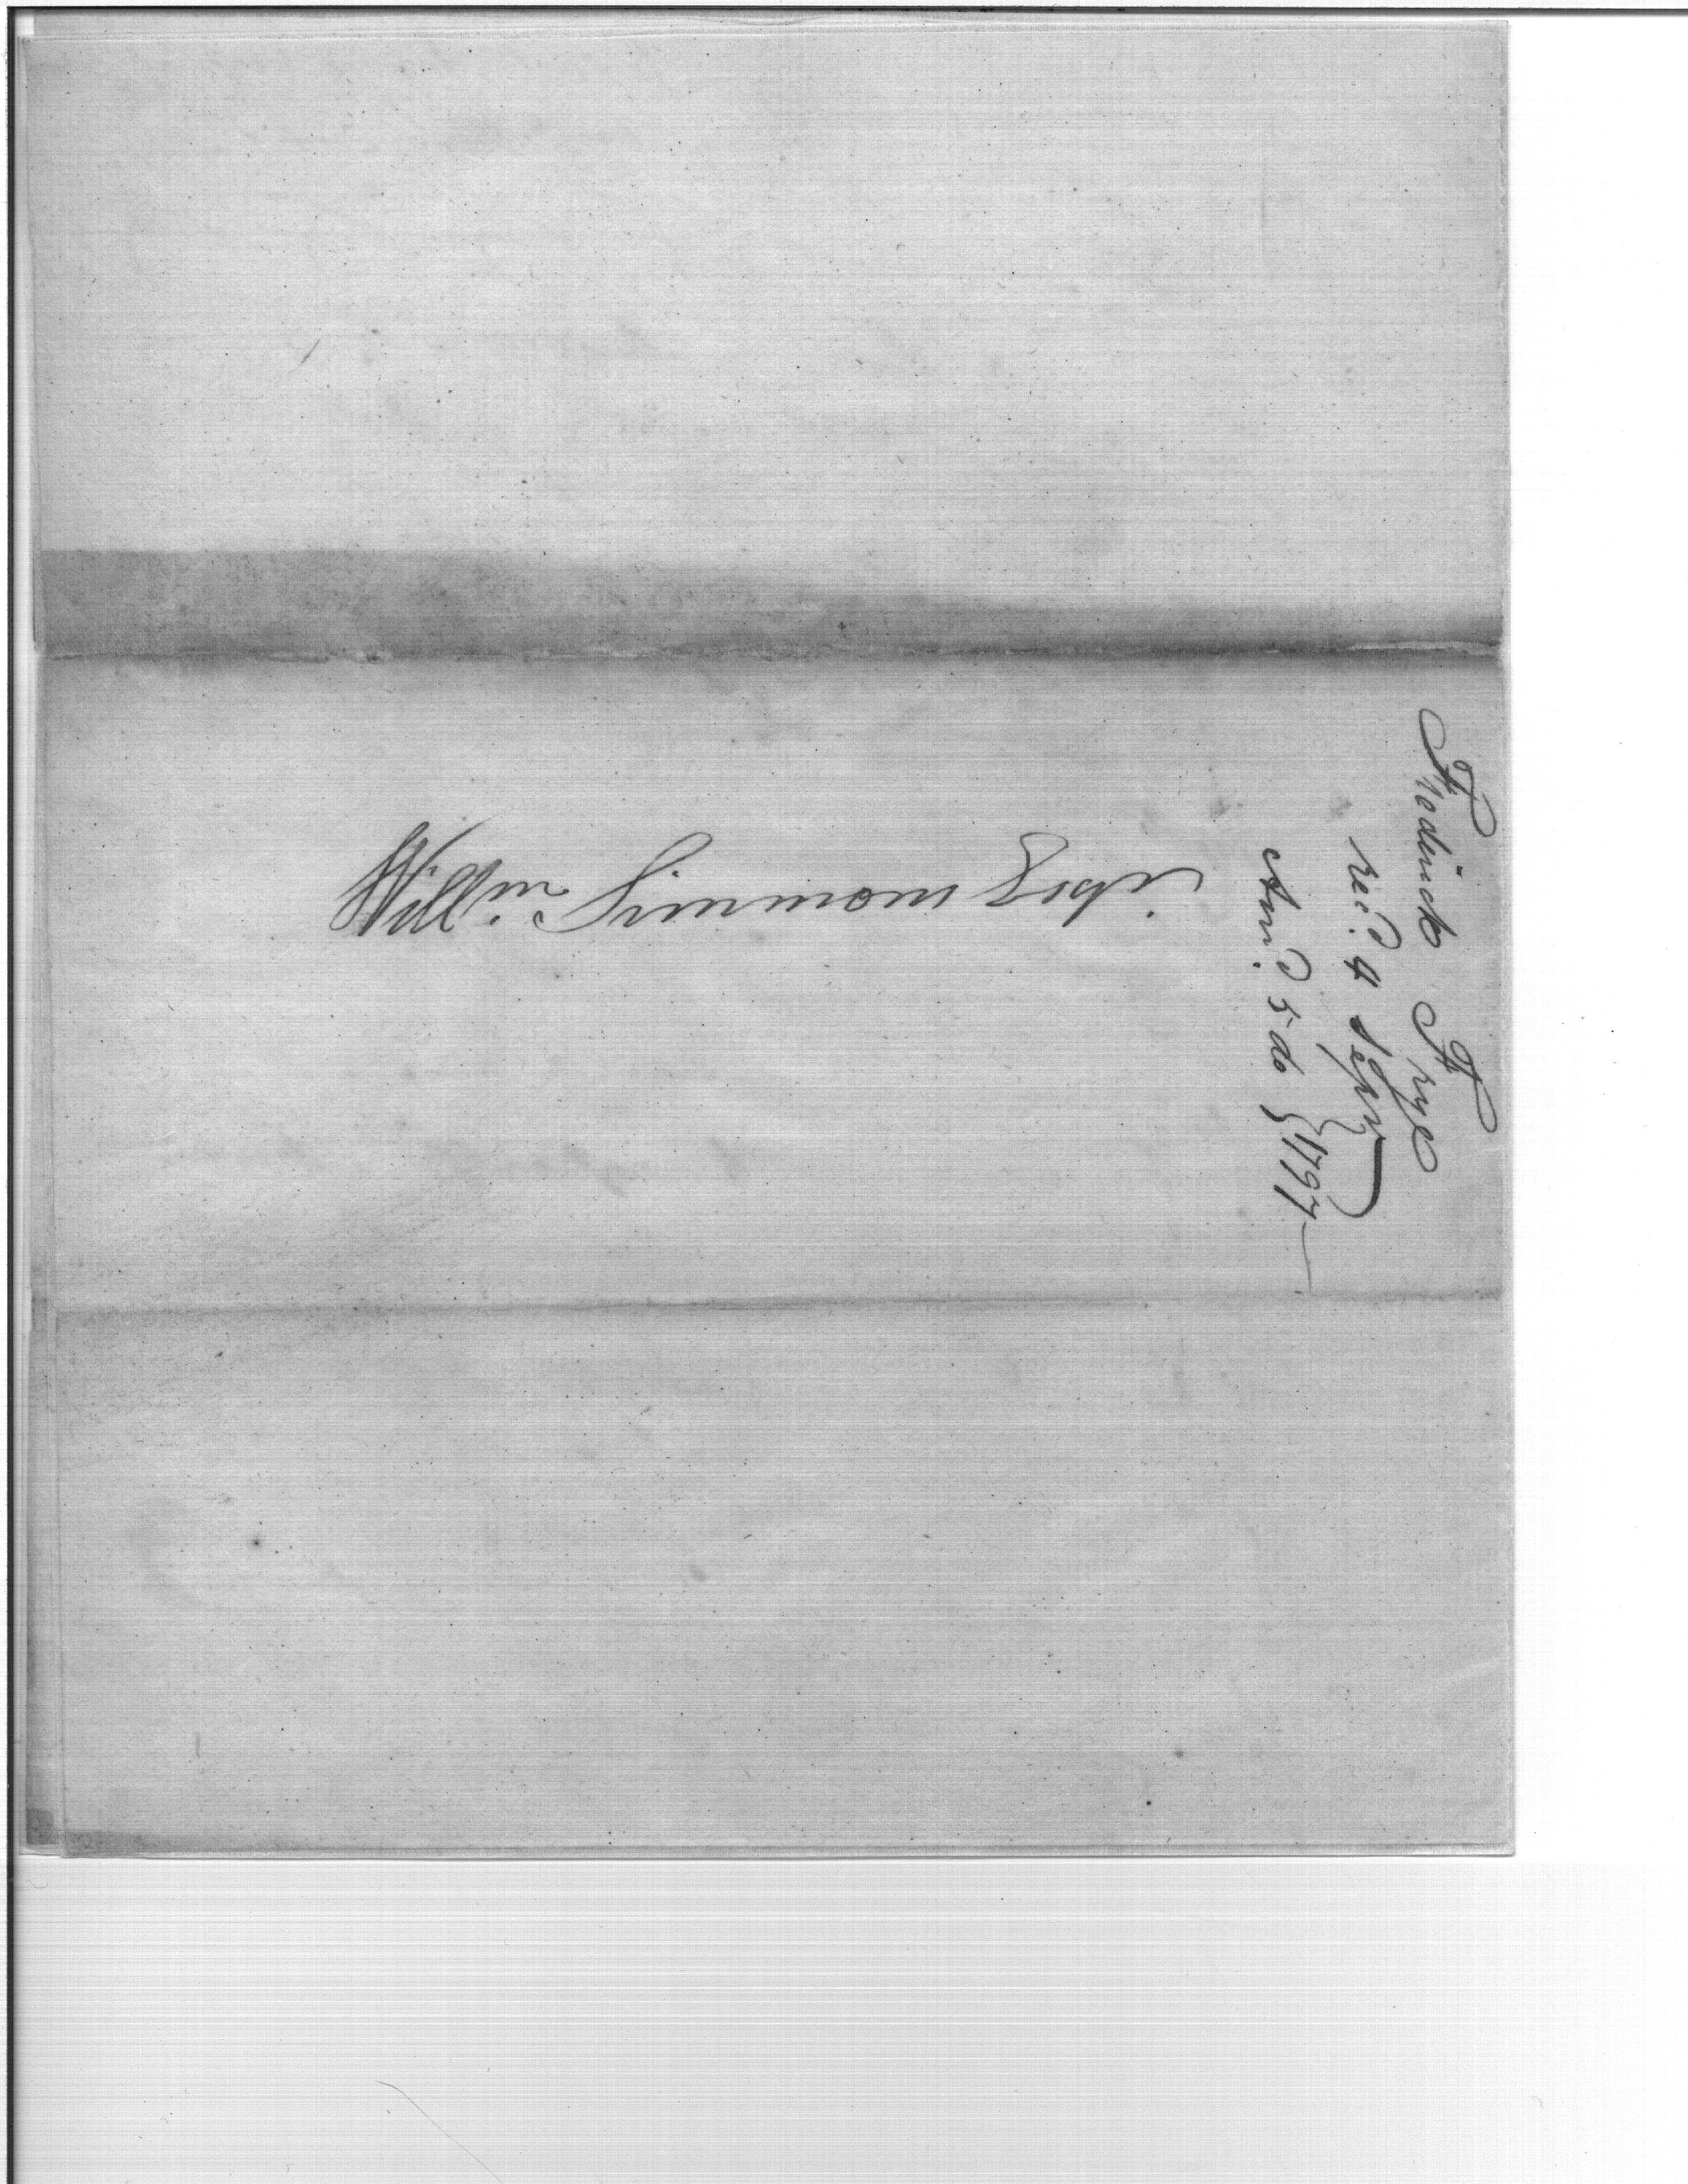 Willm. Simmons Esqr.
Frederick Frye
rec.d 4 Sepr
Ans.d 5 do } 1797